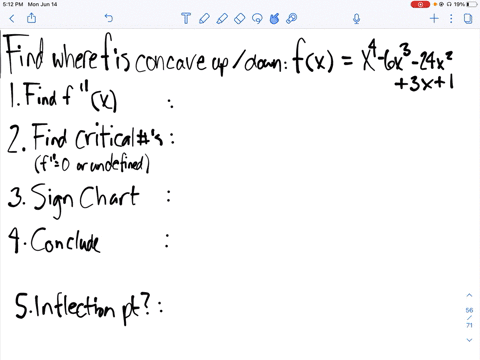 5:12 PM Mon Jun 14
19%
Find where f is concave up/down: f(x) = x⁴-6x³-24x²
+3x+1
1. Find f"(x) :
2. Find Critical #'s :
(f"=0 or undefined)
3. Sign Chart :
4. Conclude :
5. Inflection pt? :
56
/
71